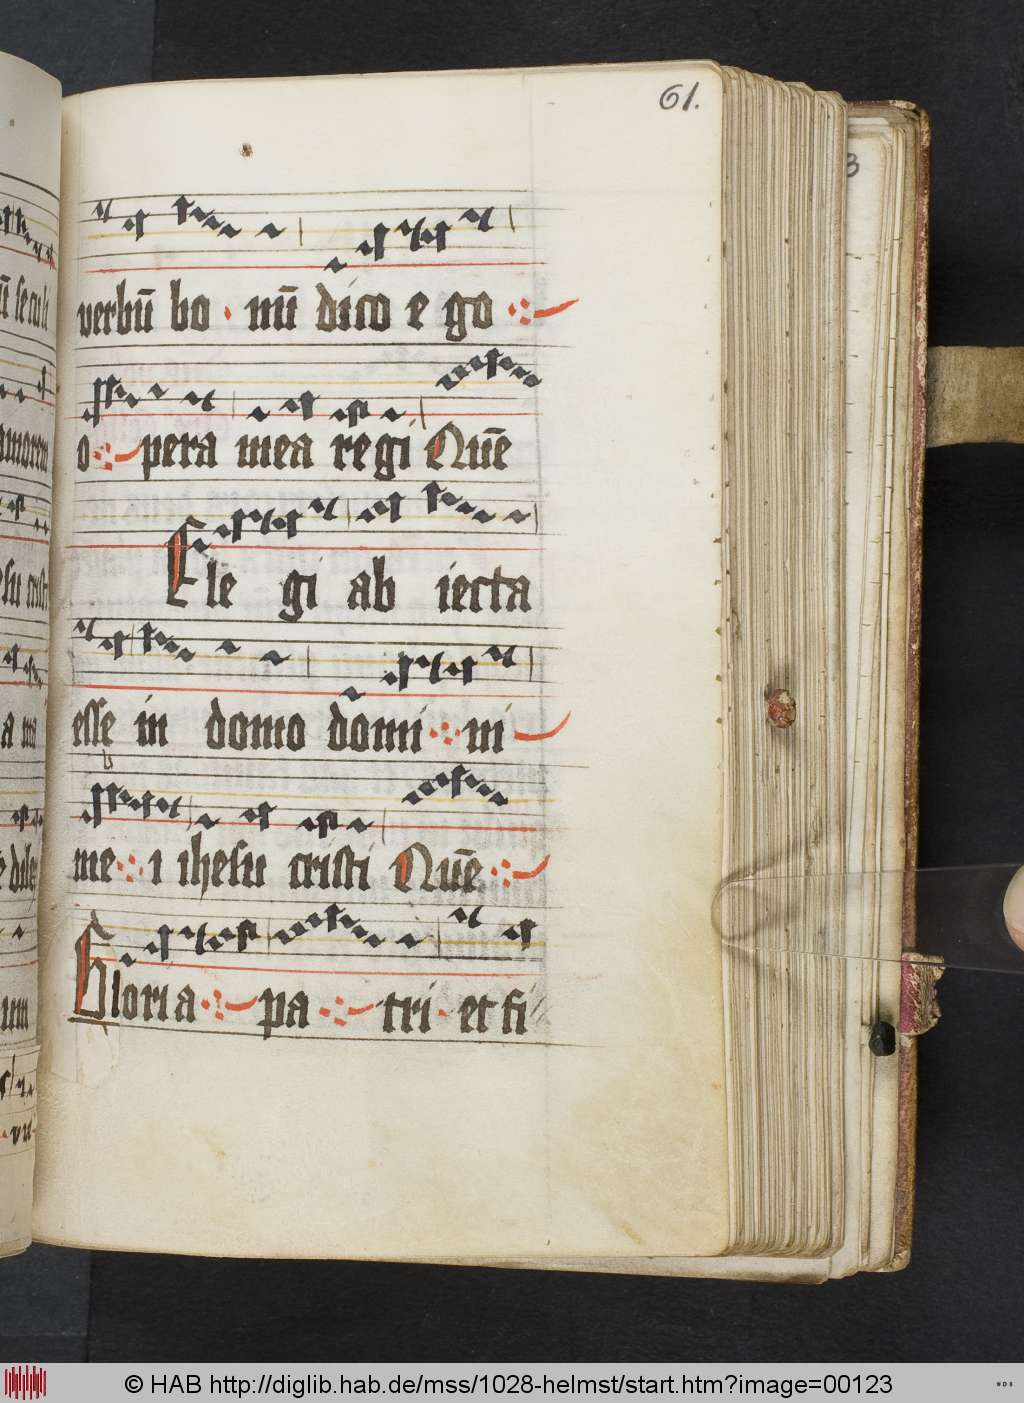 61.
verbū bo nū dico e go
o pera mea regi Quē
Ele gi ab iecta
esse in domo domi ni
me i ihesu cristi Quē
Gloria pa tri et fi
3
ū seculi
amorem
su cristi
a mi
© HAB http://diglib.hab.de/mss/1028-helmst/start.htm?image=00123